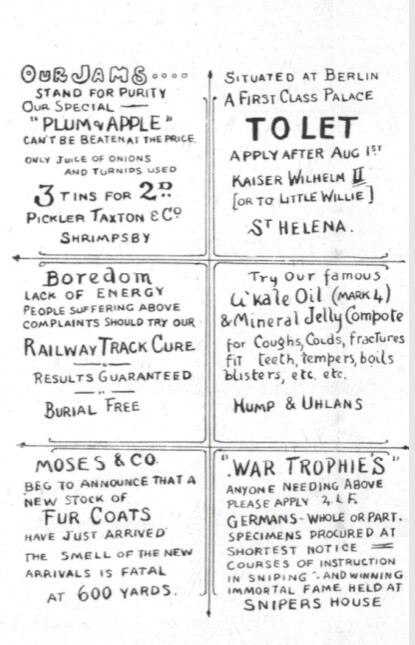 OUR JAMS....
STAND FOR PURITY
OUR SPECIAL —
"PLUM & APPLE"
CAN'T BE BEATEN AT THE PRICE
ONLY JUICE OF ONIONS
AND TURNIPS USED
3 TINS FOR 2D.
PICKLER TAXTON & CO
SHRIMPSBY
SITUATED AT BERLIN
A FIRST CLASS PALACE
TO LET
APPLY AFTER AUG 1ST
KAISER WILHELM II
[OR TO LITTLE WILLIE]
ST HELENA.
Boredom
LACK OF ENERGY
PEOPLE SUFFERING ABOVE
COMPLAINTS SHOULD TRY OUR
RAILWAY TRACK CURE
RESULTS GUARANTEED
BURIAL FREE
Try Our famous
U'kale Oil (MARK 4)
& Mineral Jelly Compote
for Coughs, Colds, fractures
fit teeth, tempers, boils
blisters, etc. etc.
HUMP & UHLANS
MOSES & CO.
BEG TO ANNOUNCE THAT A
NEW STOCK OF
FUR COATS
HAVE JUST ARRIVED
THE SMELL OF THE NEW
ARRIVALS IS FATAL
AT 600 YARDS.
"WAR TROPHIE'S"
ANYONE NEEDING ABOVE
PLEASE APPLY 2, L.F.
GERMANS - WHOLE OR PART.
SPECIMENS PROCURED AT
SHORTEST NOTICE
COURSES OF INSTRUCTION
IN SNIPING - AND WINNING
IMMORTAL FAME HELD AT
SNIPERS HOUSE